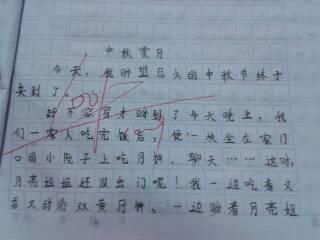 中秋赏月
今天，我盼望已久的中秋节终于
来到了。
好不容易才盼到了今天晚上，我
们一家人吃完饭后，便一块坐在家门
口前小院子上吃月饼、聊天……这时，
月亮姐姐还没出门呢！我一边吃着又
香又甜的双黄月饼，一边盼着月亮姐